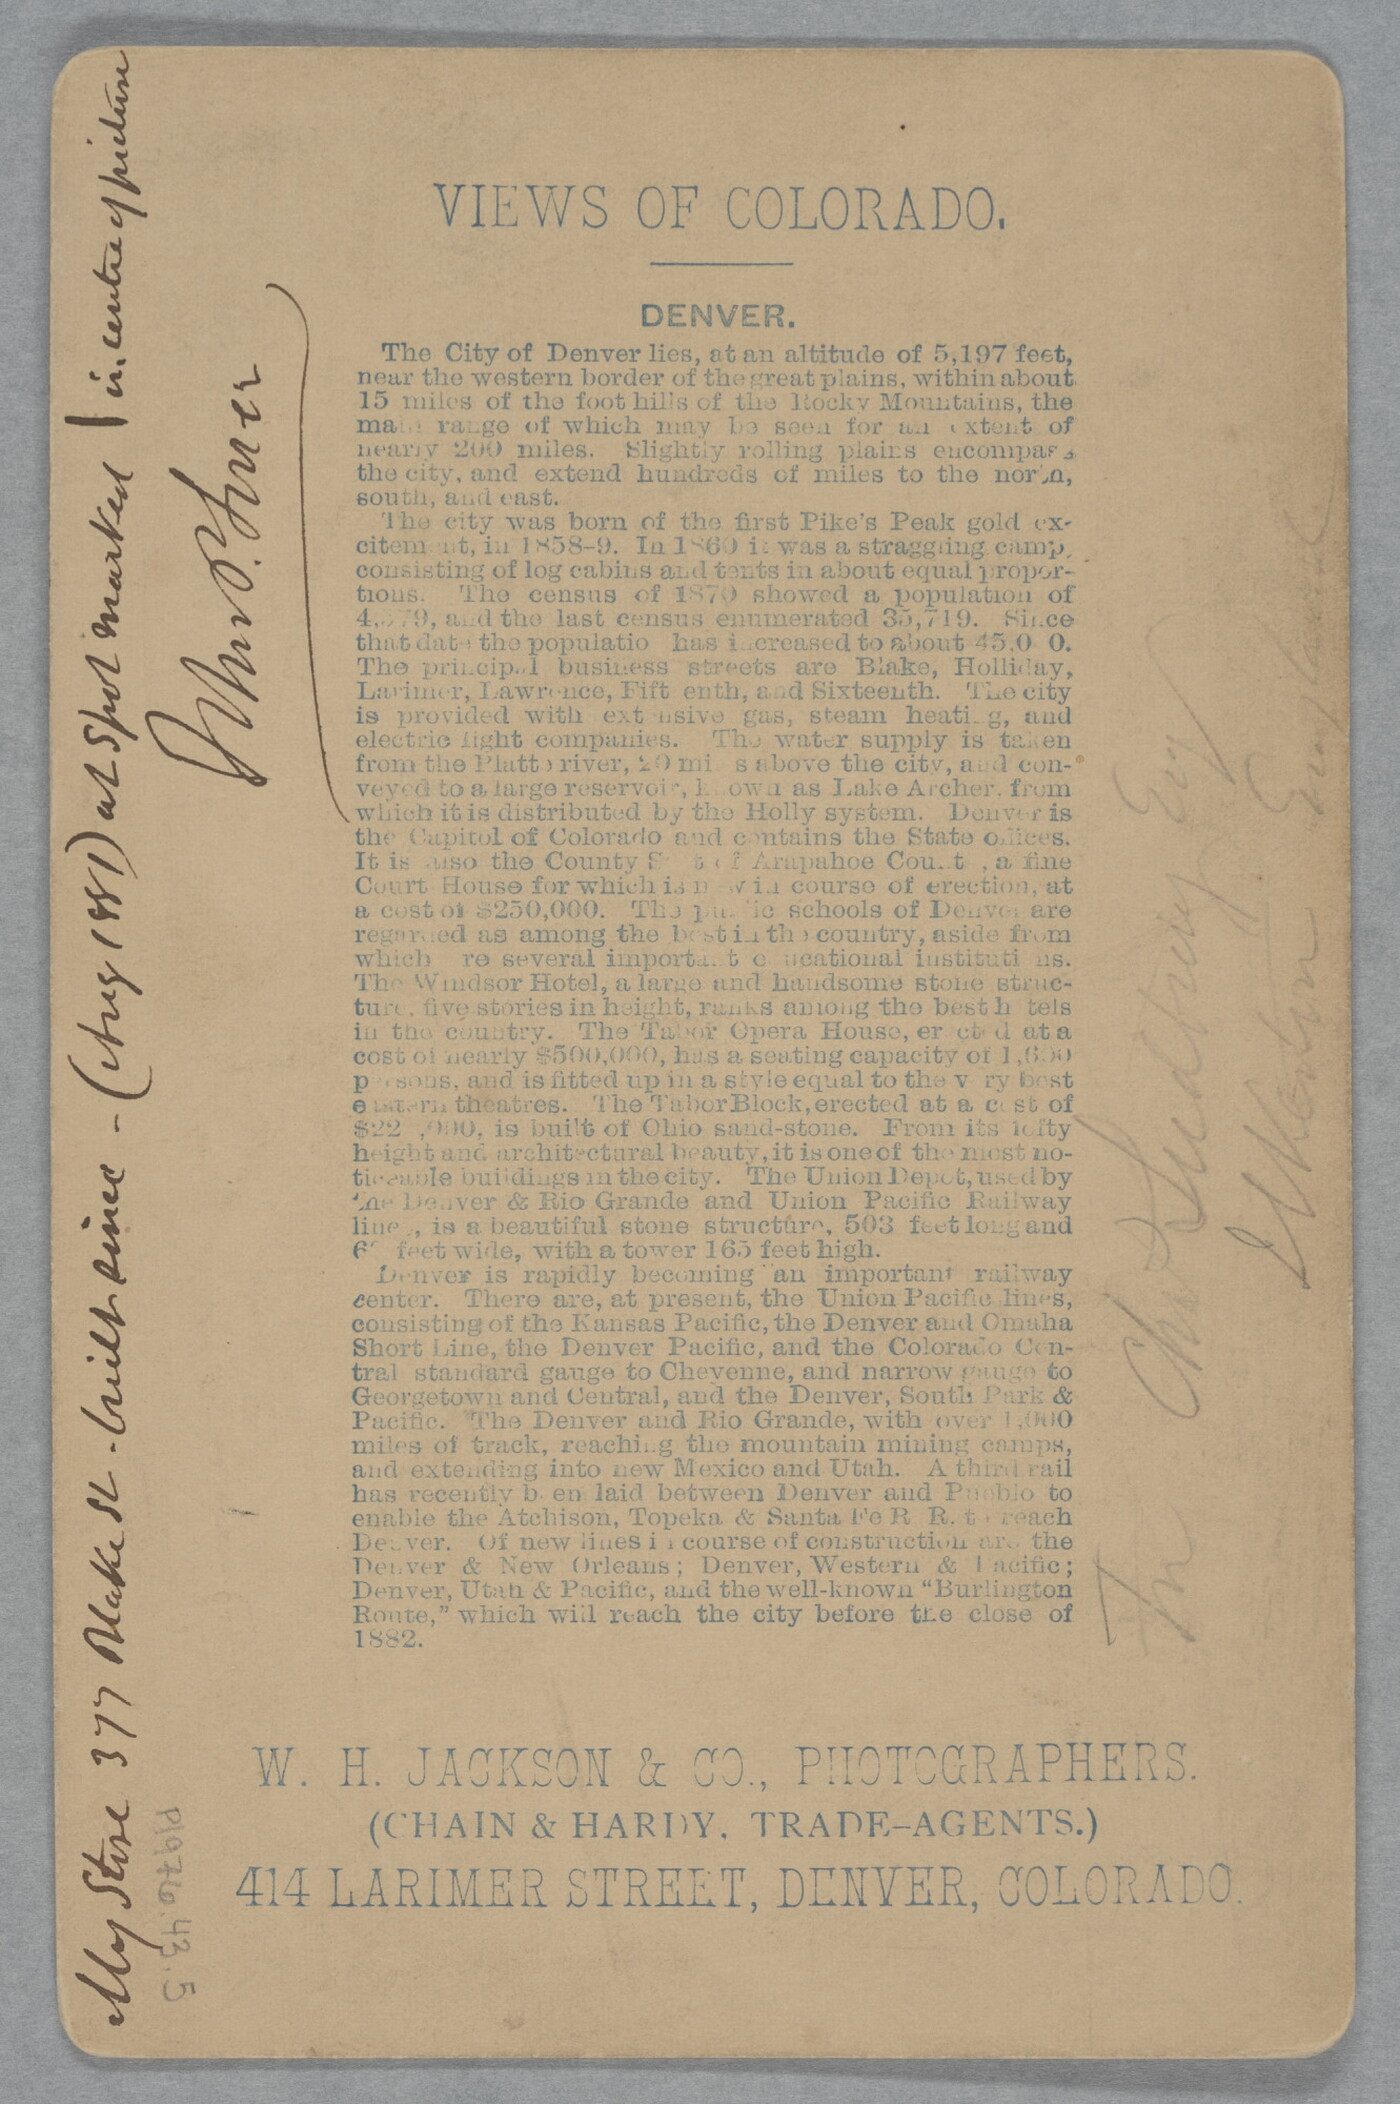 VIEWS OF COLORADO.
DENVER.
The City of Denver lies, at an altitude of 5,197 feet,
near the western border of the great plains, within about
15 miles of the foot hills of the Rocky Mountains, the
main range of which may be seen for an extent of
nearly 200 miles. Slightly rolling plains encompass
the city, and extend hundreds of miles to the north,
south, and east.
The city was born of the first Pike's Peak gold ex-
citement, in 1858-9. In 1860 it was a straggling camp,
consisting of log cabins and tents in about equal propor-
tions. The census of 1870 showed a population of
and the last census enumerated 35,719. Since
that date the population has increased to about 45,000.
The principal business streets are Blake, Holliday,
Larimer, Lawrence, Fifteenth, and Sixteenth. The city
is provided with extensive gas, steam heating, and
electric light companies. The water supply is taken
from the Platte river, 20 miles above the city, and con-
veyed to a large reservoir, known as Lake Archer, from
which it is distributed by the Holly system. Denver is
the Capitol of Colorado and contains the State offices.
It is also the County Seat of Arapahoe County, a fine
Court House for which is now in course of erection, at
a cost of $250,000. The public schools of Denver are
regarded as among the best in the country, aside from
which are several important educational institutions.
The Windsor Hotel, a large and handsome stone struc-
ture, five stories in height, ranks among the best hotels
in the country. The Tabor Opera House, erected at a
cost of nearly $500,000, has a seating capacity of
persons, and is fitted up in a style equal to the very best
eastern theatres. The Tabor Block, erected at a cost of
is built of Ohio sand-stone. From its lofty
height and architectural beauty, it is one of the most no-
ticeable buildings in the city. The Union Depot, used by
the Denver & Rio Grande and Union Pacific Railway
lines, is a beautiful stone structure, 503 feet long and
feet wide, with a tower 165 feet high.
Denver is rapidly becoming an important railway
center. There are, at present, the Union Pacific lines,
consisting of the Kansas Pacific, the Denver and Omaha
Short Line, the Denver Pacific, and the Colorado Cen-
tral standard gauge to Cheyenne, and narrow gauge to
Georgetown and Central, and the Denver, South Park &
Pacific. The Denver and Rio Grande, with over 1,000
miles of track, reaching the mountain mining camps,
and extending into new Mexico and Utah. A third rail
has recently been laid between Denver and Pueblo to
enable the Atchison, Topeka & Santa Fe R. R. to reach
Denver. Of new lines in course of construction are the
Denver & New Orleans; Denver, Western & Pacific;
Denver, Utah & Pacific, and the well-known "Burlington
Route," which will reach the city before the close of
1882.
W. H. JACKSON & CO., PHOTOGRAPHERS.
(CHAIN & HARDY, TRADE-AGENTS.)
414 LARIMER STREET, DENVER, COLORADO.
My Store 377 Blake st - built since - (Aug 1881) at spot marked | in centre of picture
P1976.43.5